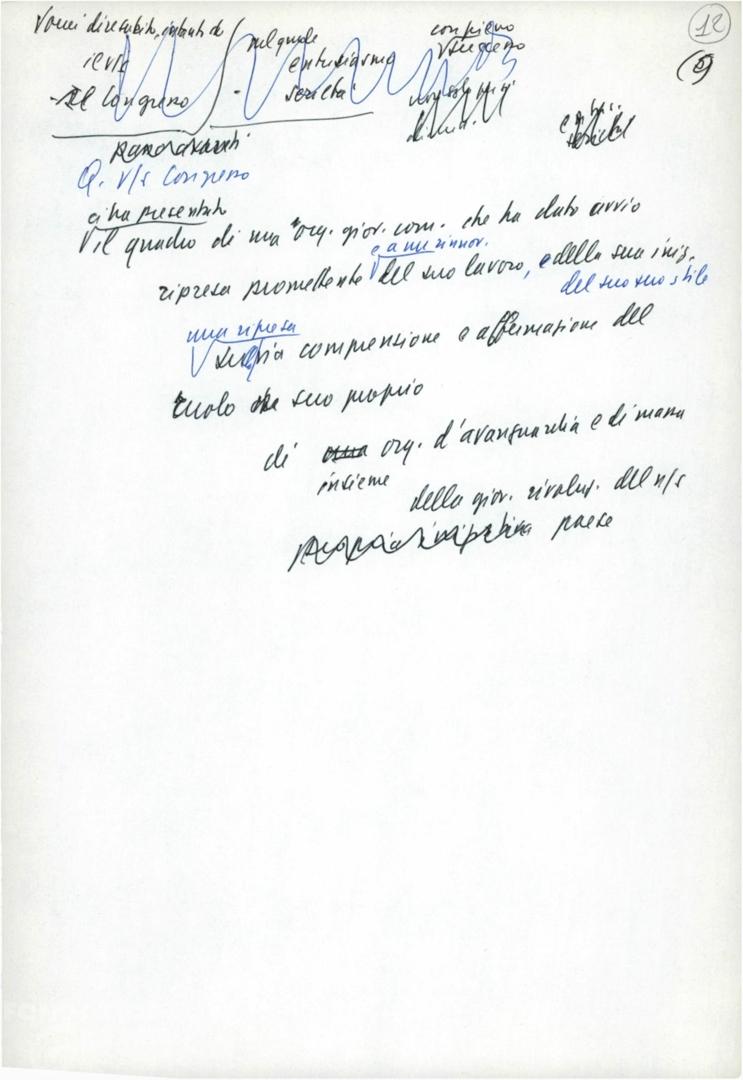 12
Vorrei dire subito,
nel quale
con pieno
successo
il v/s
entusiasmo
Il Congresso
serietà
non solo
Q. v/s Congresso
ci ha presentato
il quadro di una org. giov. com. che ha dato avvio
e a un rinnov.
ripresa promettente del suo lavoro, e della sua iniz.
del suo suo stile
una ripresa
comprensione e affermazione del
ruolo suo proprio
di org. d'avanguardia e di massa
insieme
della giov. rivoluz. del n/s
paese